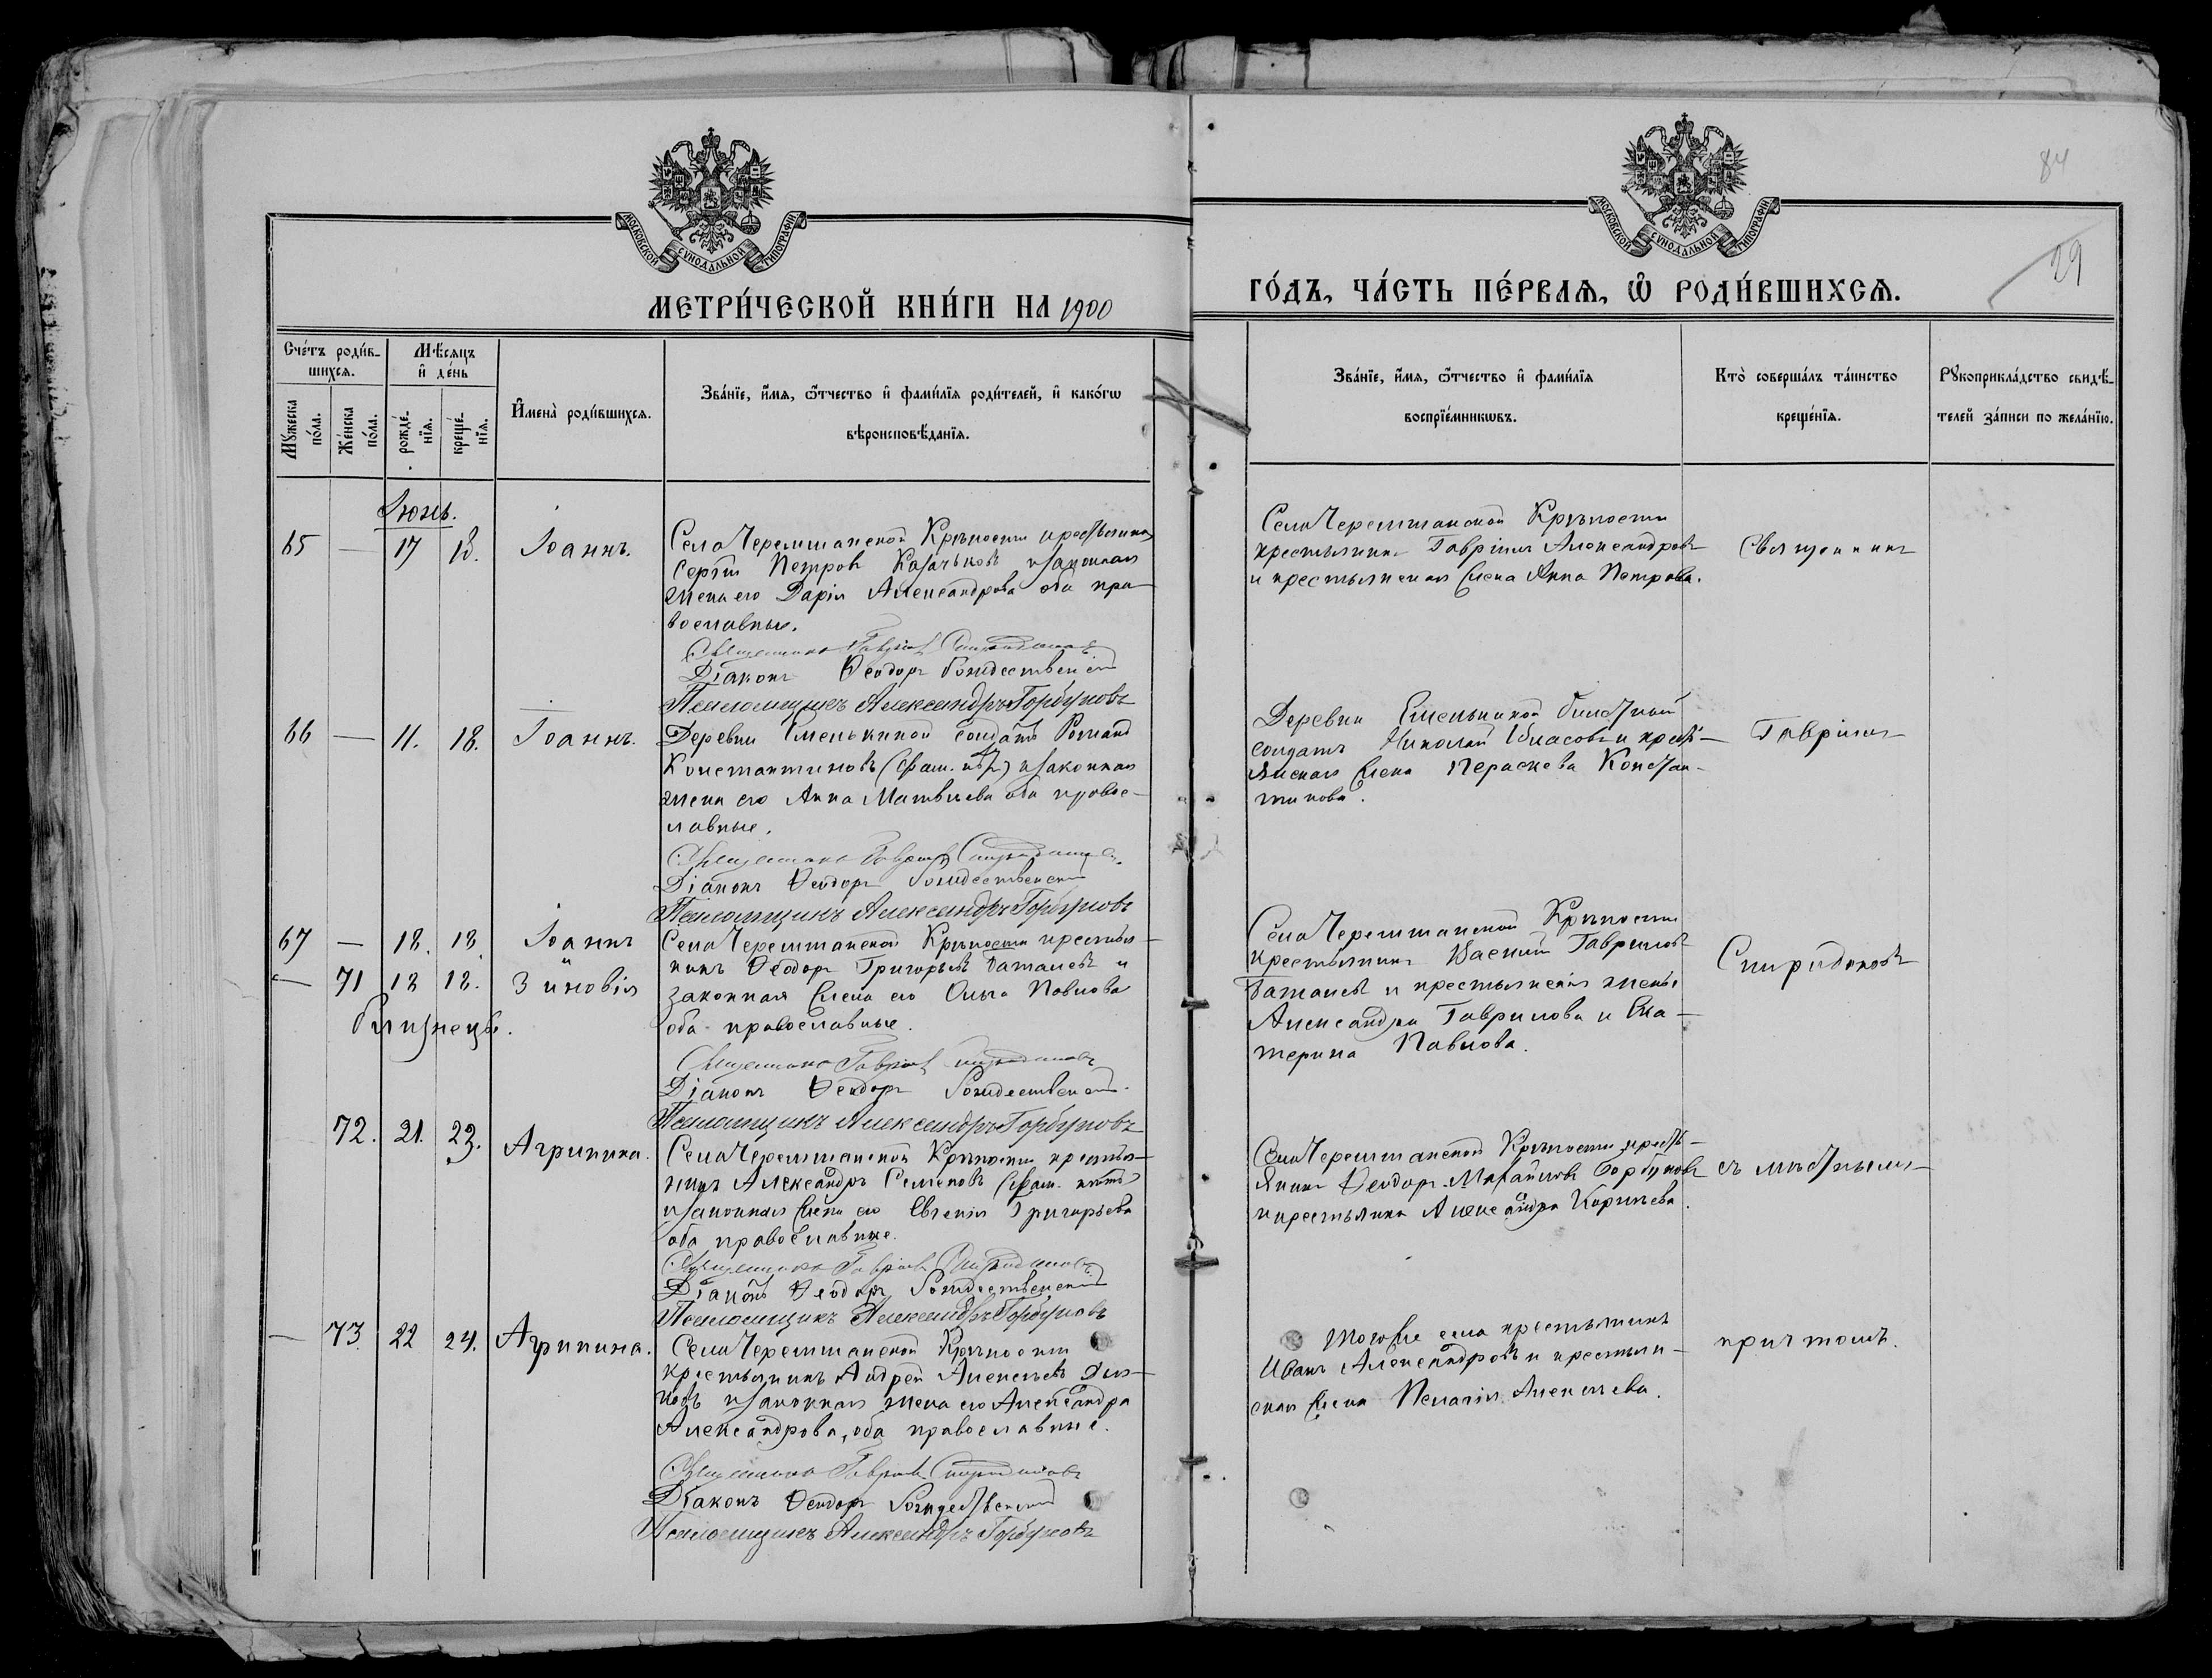 84
29
МОСКОВСКОЙ СѴНОДАЛЬНОЙ ТИПОГРАФІИ
МОСКОВСКОЙ СѴНОДАЛЬНОЙ ТИПОГРАФІИ
МЕТРИ́ЧЕСКОЙ КНИ́ГИ НА 1900
ГО́ДЪ, ЧА́СТЬ ПЕ́РВАЯ, Ѡ РОДИ́ВШИХСЯ.
Сче́тъ роди́в-
шихся.
Мꙋжеска по́ла.
Же́нска по́ла.
Мѣ́сяцъ
и҆ де́нь
рожде́-
нїя.
креще́-
нїя.
И҆мена̀ роди́вшихся.
Зва́нїе, и҆́мя, ѻ҆́тчество и҆ фами́лїя роди́телей, и҆ како́гѡ
вѣроисповѣ́данїя.
Зва́нїе, и҆́мя, ѻ҆́тчество и҆ фами́лїя
воспрїе́мникѡвъ.
Кто̀ соверша́лъ та́инство
креще́нїя.
Рꙋкоприкла́дство свидѣ́-
телей за́писи по жела́нїю.
Іюнь.
65 — 17 18. Іоаннъ.
Села Черемшанской Крѣпости крестьянинъ
Сергій Петровъ Казачковъ и законная
жена его Дарія Александрова оба пра-
вославные.
Священникъ Гавріилъ Спиридоновъ
Діаконъ Ѳеодоръ Рождественскій
Псаломщикъ Александръ Горбуновъ
Села Черемшанской Крѣпости
крестьянинъ Гавріилъ Александровъ
и крестьянская жена Анна Петрова.
Священникъ
66 — 11. 18. Іоаннъ.
Деревни Емелькиной солдатъ Романъ
Константиновъ (фам. нѣтъ) и законная
жена его Анна Матвѣева оба правос-
лавные.
Священникъ Гавріилъ Спиридоновъ
Діаконъ Ѳеодоръ Рождественскій
Псаломщикъ Александръ Горбуновъ
Деревни Емелькиной
солдатъ Николай Власовъ и крест-
янская жена Параскева Констан-
тинова.
Гавріилъ
67 — 18. 18. Іоаннъ
— 71 18 18. Зиновія
близнецы.
Села Черемшанской Крѣпости крестья-
нинъ Ѳеодоръ Григорьевъ Баталовъ и
законная жена его Ольга Павлова
оба православные.
Священникъ Гавріилъ Спиридоновъ
Діаконъ Ѳеодоръ Рождественскій.
Псаломщикъ Александръ Горбуновъ
Села Черемшанской Крѣпости
крестьянинъ Василій Гавриловъ
Баталовъ и крестьянскія жены
Александра Гаврилова и Ека-
терина Павлова.
Спиридоновъ
72. 21. 23. Агрипина.
Села Черемшанской Крѣпости крестья-
нинъ Александръ Семеновъ (фам. нѣтъ)
и законная жена его Евгенія Григорьева
оба православные.
Священникъ Гавріилъ Спиридоновъ
Діаконъ Ѳеодоръ Рождественскій
Псаломщикъ Александръ Горбуновъ
Села Черемшанской Крѣпости кресть-
янинъ Ѳеодоръ Михайловъ Горбуновъ
и крестьянка Александра Корнѣева.
съ мѣстнымъ
— 73. 22 24. Агрипина.
Села Черемшанской Крѣпости
крестьянинъ Андрей Алексѣевъ
и законная жена его Александра
Александрова, оба православные.
Священникъ Гавріилъ Спиридоновъ
Діаконъ Ѳеодоръ Рождественскій
Псаломщикъ Александръ Горбуновъ
Того же села крестьянинъ
Иванъ Александровъ и крестьян-
ская жена Пелагія Алексѣева.
причтомъ.